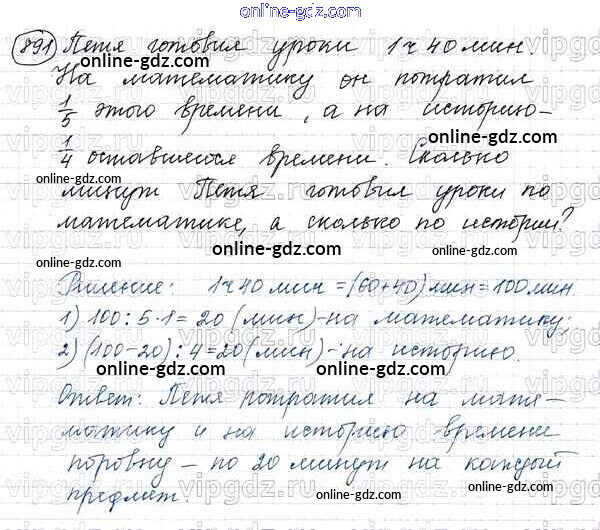 online-gdz.com
891 Петя готовил уроки 1ч 40 мин
На математику он потратил
1/5 этого времени, а на историю -
online-gdz.com
1/4 оставшегося времени. Сколько
online-gdz.com online-gdz.com
минут Петя готовил уроки по
математике, а сколько по истории?
online-gdz.com online-gdz.com
Решение: 1ч 40 мин = (60+40) мин = 100 мин
1) 100 : 5 · 1 = 20 (мин) - на математику;
2) (100-20) : 4 = 20 (мин) - на историю.
online-gdz.com online-gdz.com
Ответ: Петя потратил на мате-
матику и на историю времени
поровну - по 20 минут на каждый
предмет.
online-gdz.com online-gdz.com